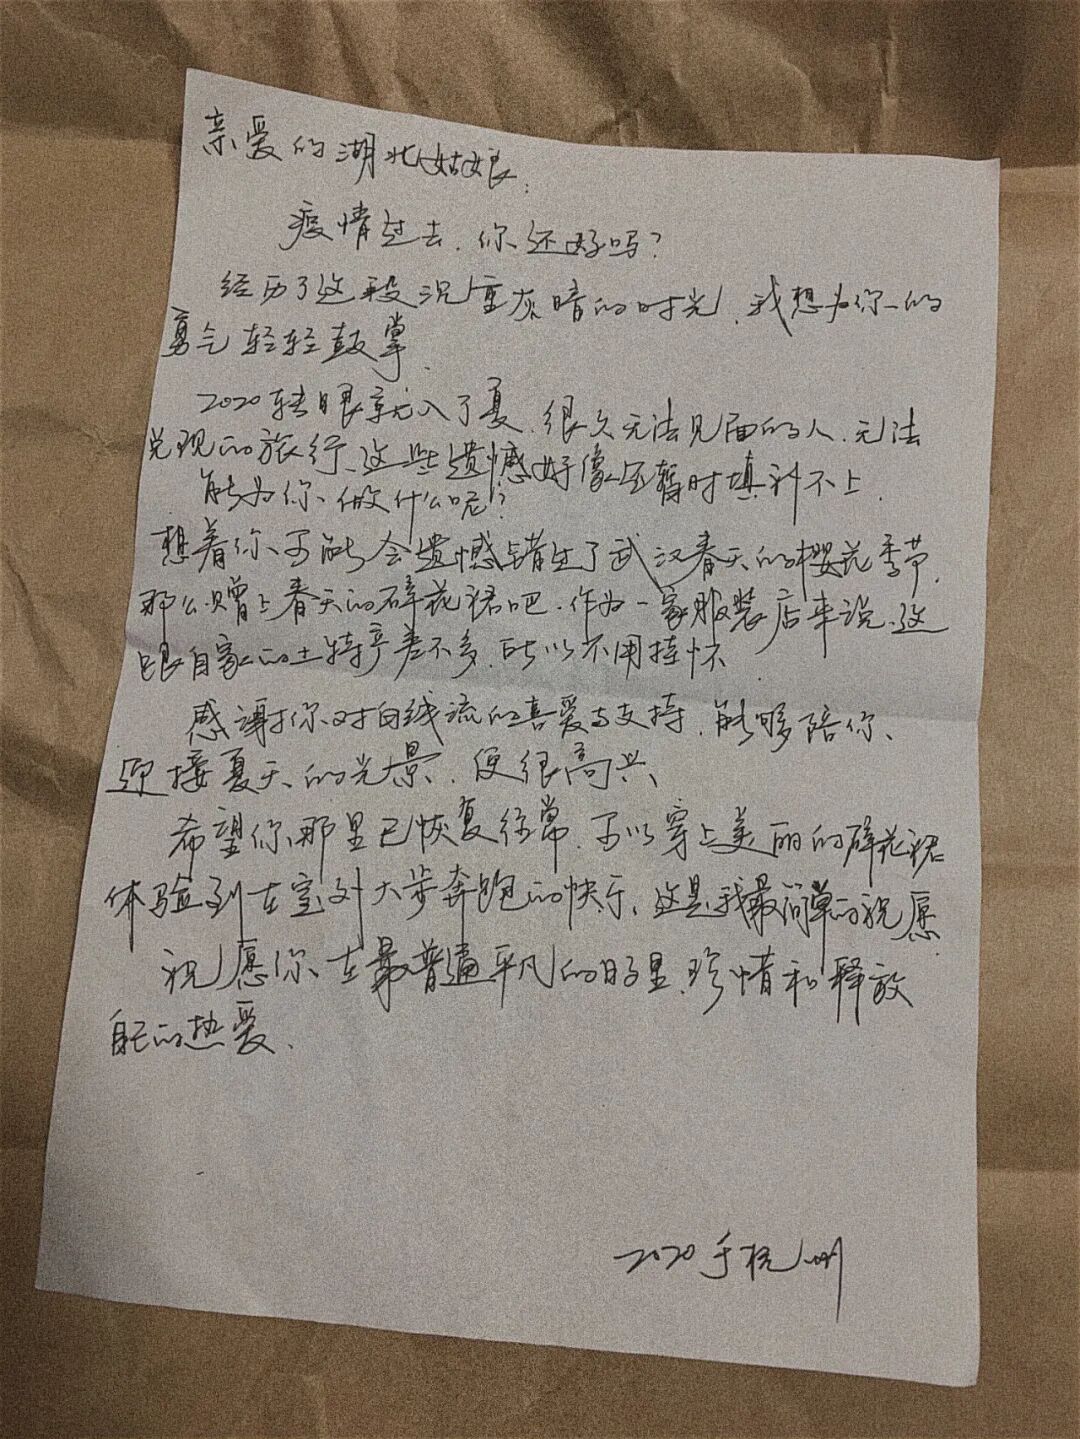 亲爱的湖北姑娘：
疫情过去，你还好吗？
经历了这段沉重灰暗的时光，我想为你的
勇气轻轻鼓掌．
2020转眼就入了夏，很久无法见面的人，无法
兑现的旅行、这些遗憾好像还暂时填补不上．
能为你做什么呢？
想着你可能会遗憾错过了武汉春天的樱花季节，
那么赠上春天的碎花裙吧．作为一家服装店来说，这
跟自家的土特产差不多，所以不用挂怀
感谢你对白线流的喜爱与支持，能够陪你、
迎接夏天的光景，便很高兴、
希望你那里已恢复往常，可以穿上美丽的碎花裙
体验到在室外大步奔跑的快乐，这是我最简单的祝愿
祝愿你、在最普通平凡的日子里，珍惜和释放
自己的热爱、
2020 于杭州